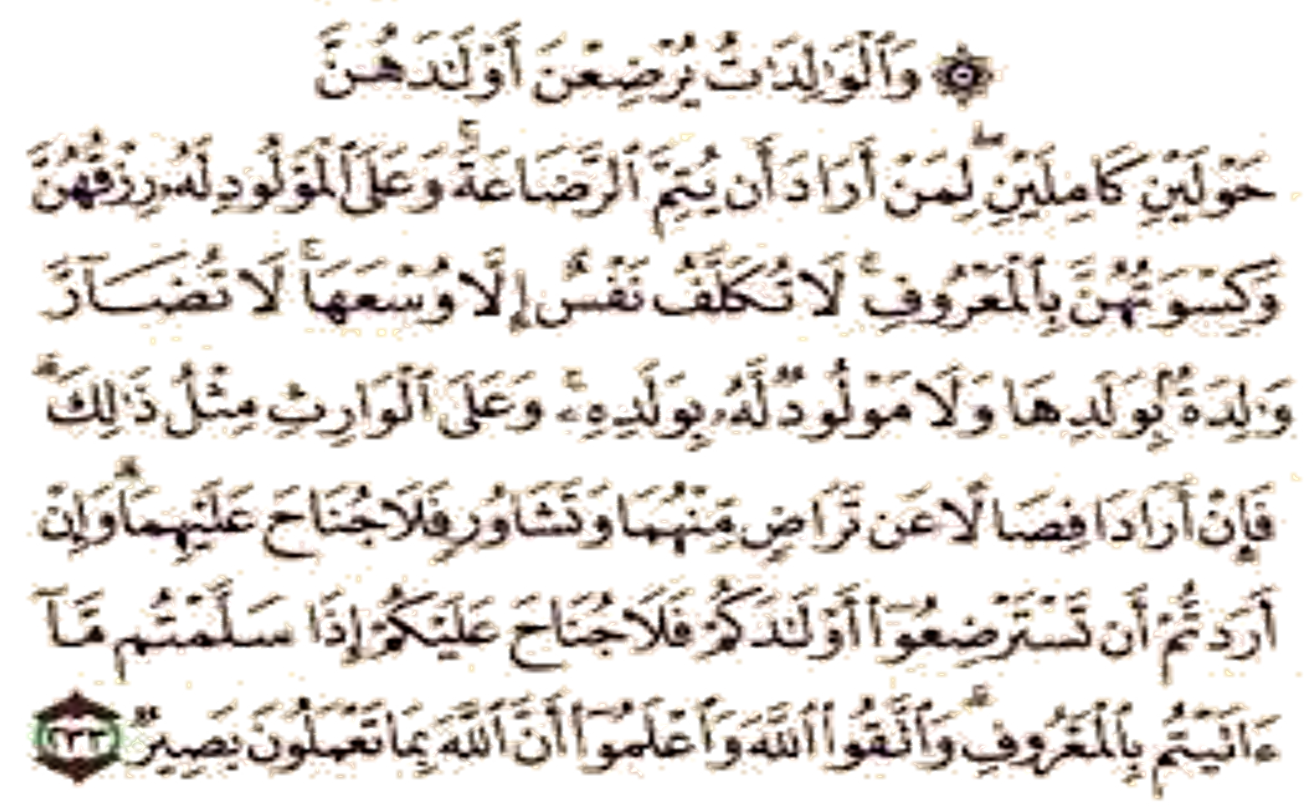 ۞ وَٱلْوَٰلِدَٰتُ يُرْضِعْنَ أَوْلَٰدَهُنَّ
حَوْلَيْنِ كَامِلَيْنِ ۖ لِمَنْ أَرَادَ أَن يُتِمَّ ٱلرَّضَاعَةَ ۚ وَعَلَى ٱلْمَوْلُودِ لَهُۥ رِزْقُهُنَّ
وَكِسْوَتُهُنَّ بِٱلْمَعْرُوفِ ۚ لَا تُكَلَّفُ نَفْسٌ إِلَّا وُسْعَهَا ۚ لَا تُضَآرَّ
وَٰلِدَةٌۢ بِوَلَدِهَا وَلَا مَوْلُودٌ لَّهُۥ بِوَلَدِهِۦ ۚ وَعَلَى ٱلْوَارِثِ مِثْلُ ذَٰلِكَ ۗ
فَإِنْ أَرَادَا فِصَالًا عَن تَرَاضٍ مِّنْهُمَا وَتَشَاوُرٍ فَلَا جُنَاحَ عَلَيْهِمَا ۗ وَإِنْ
أَرَدتُّمْ أَن تَسْتَرْضِعُوٓا۟ أَوْلَٰدَكُمْ فَلَا جُنَاحَ عَلَيْكُمْ إِذَا سَلَّمْتُم مَّآ
ءَاتَيْتُم بِٱلْمَعْرُوفِ ۗ وَٱتَّقُوا۟ ٱللَّهَ وَٱعْلَمُوٓا۟ أَنَّ ٱللَّهَ بِمَا تَعْمَلُونَ بَصِيرٌ ٢٣٣